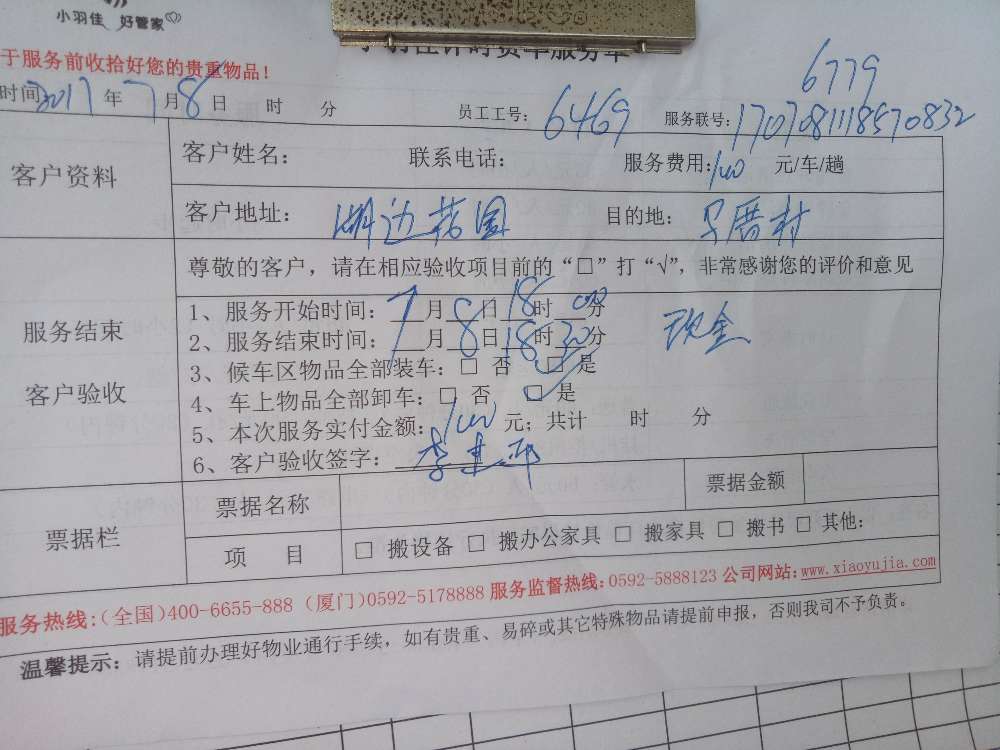 小羽佳 好管家
于服务前收拾好您的贵重物品!
6779
时间 2017 年 7 月 8 日 时 分 员工工号: 6469 服务联号: 1707081118570832
客户资料
客户姓名: 联系电话: 服务费用: 100 元/车/趟
客户地址: 湖边花园 目的地: 村
尊敬的客户，请在相应验收项目前的“□”打“√”，非常感谢您的评价和意见
服务结束
客户验收
1、服务开始时间: 7 月 8 日 18 时 00 分
2、服务结束时间: 7 月 8 日 18 时 30 分 现金
3、候车区物品全部装车: □ 否 □ 是
4、车上物品全部卸车: □ 否 □ 是
5、本次服务实付金额: 100 元; 共计 时 分
6、客户验收签字: 李建平
票据栏
票据名称 票据金额
项 目 □ 搬设备 □ 搬办公家具 □ 搬家具 □ 搬书 □ 其他:
服务热线:(全国)400-6655-888 (厦门)0592-5178888 服务监督热线:0592-5888123 公司网站:www.xiaoyujia.com
温馨提示: 请提前办理好物业通行手续，如有贵重、易碎或其它特殊物品请提前申报，否则我司不予负责。